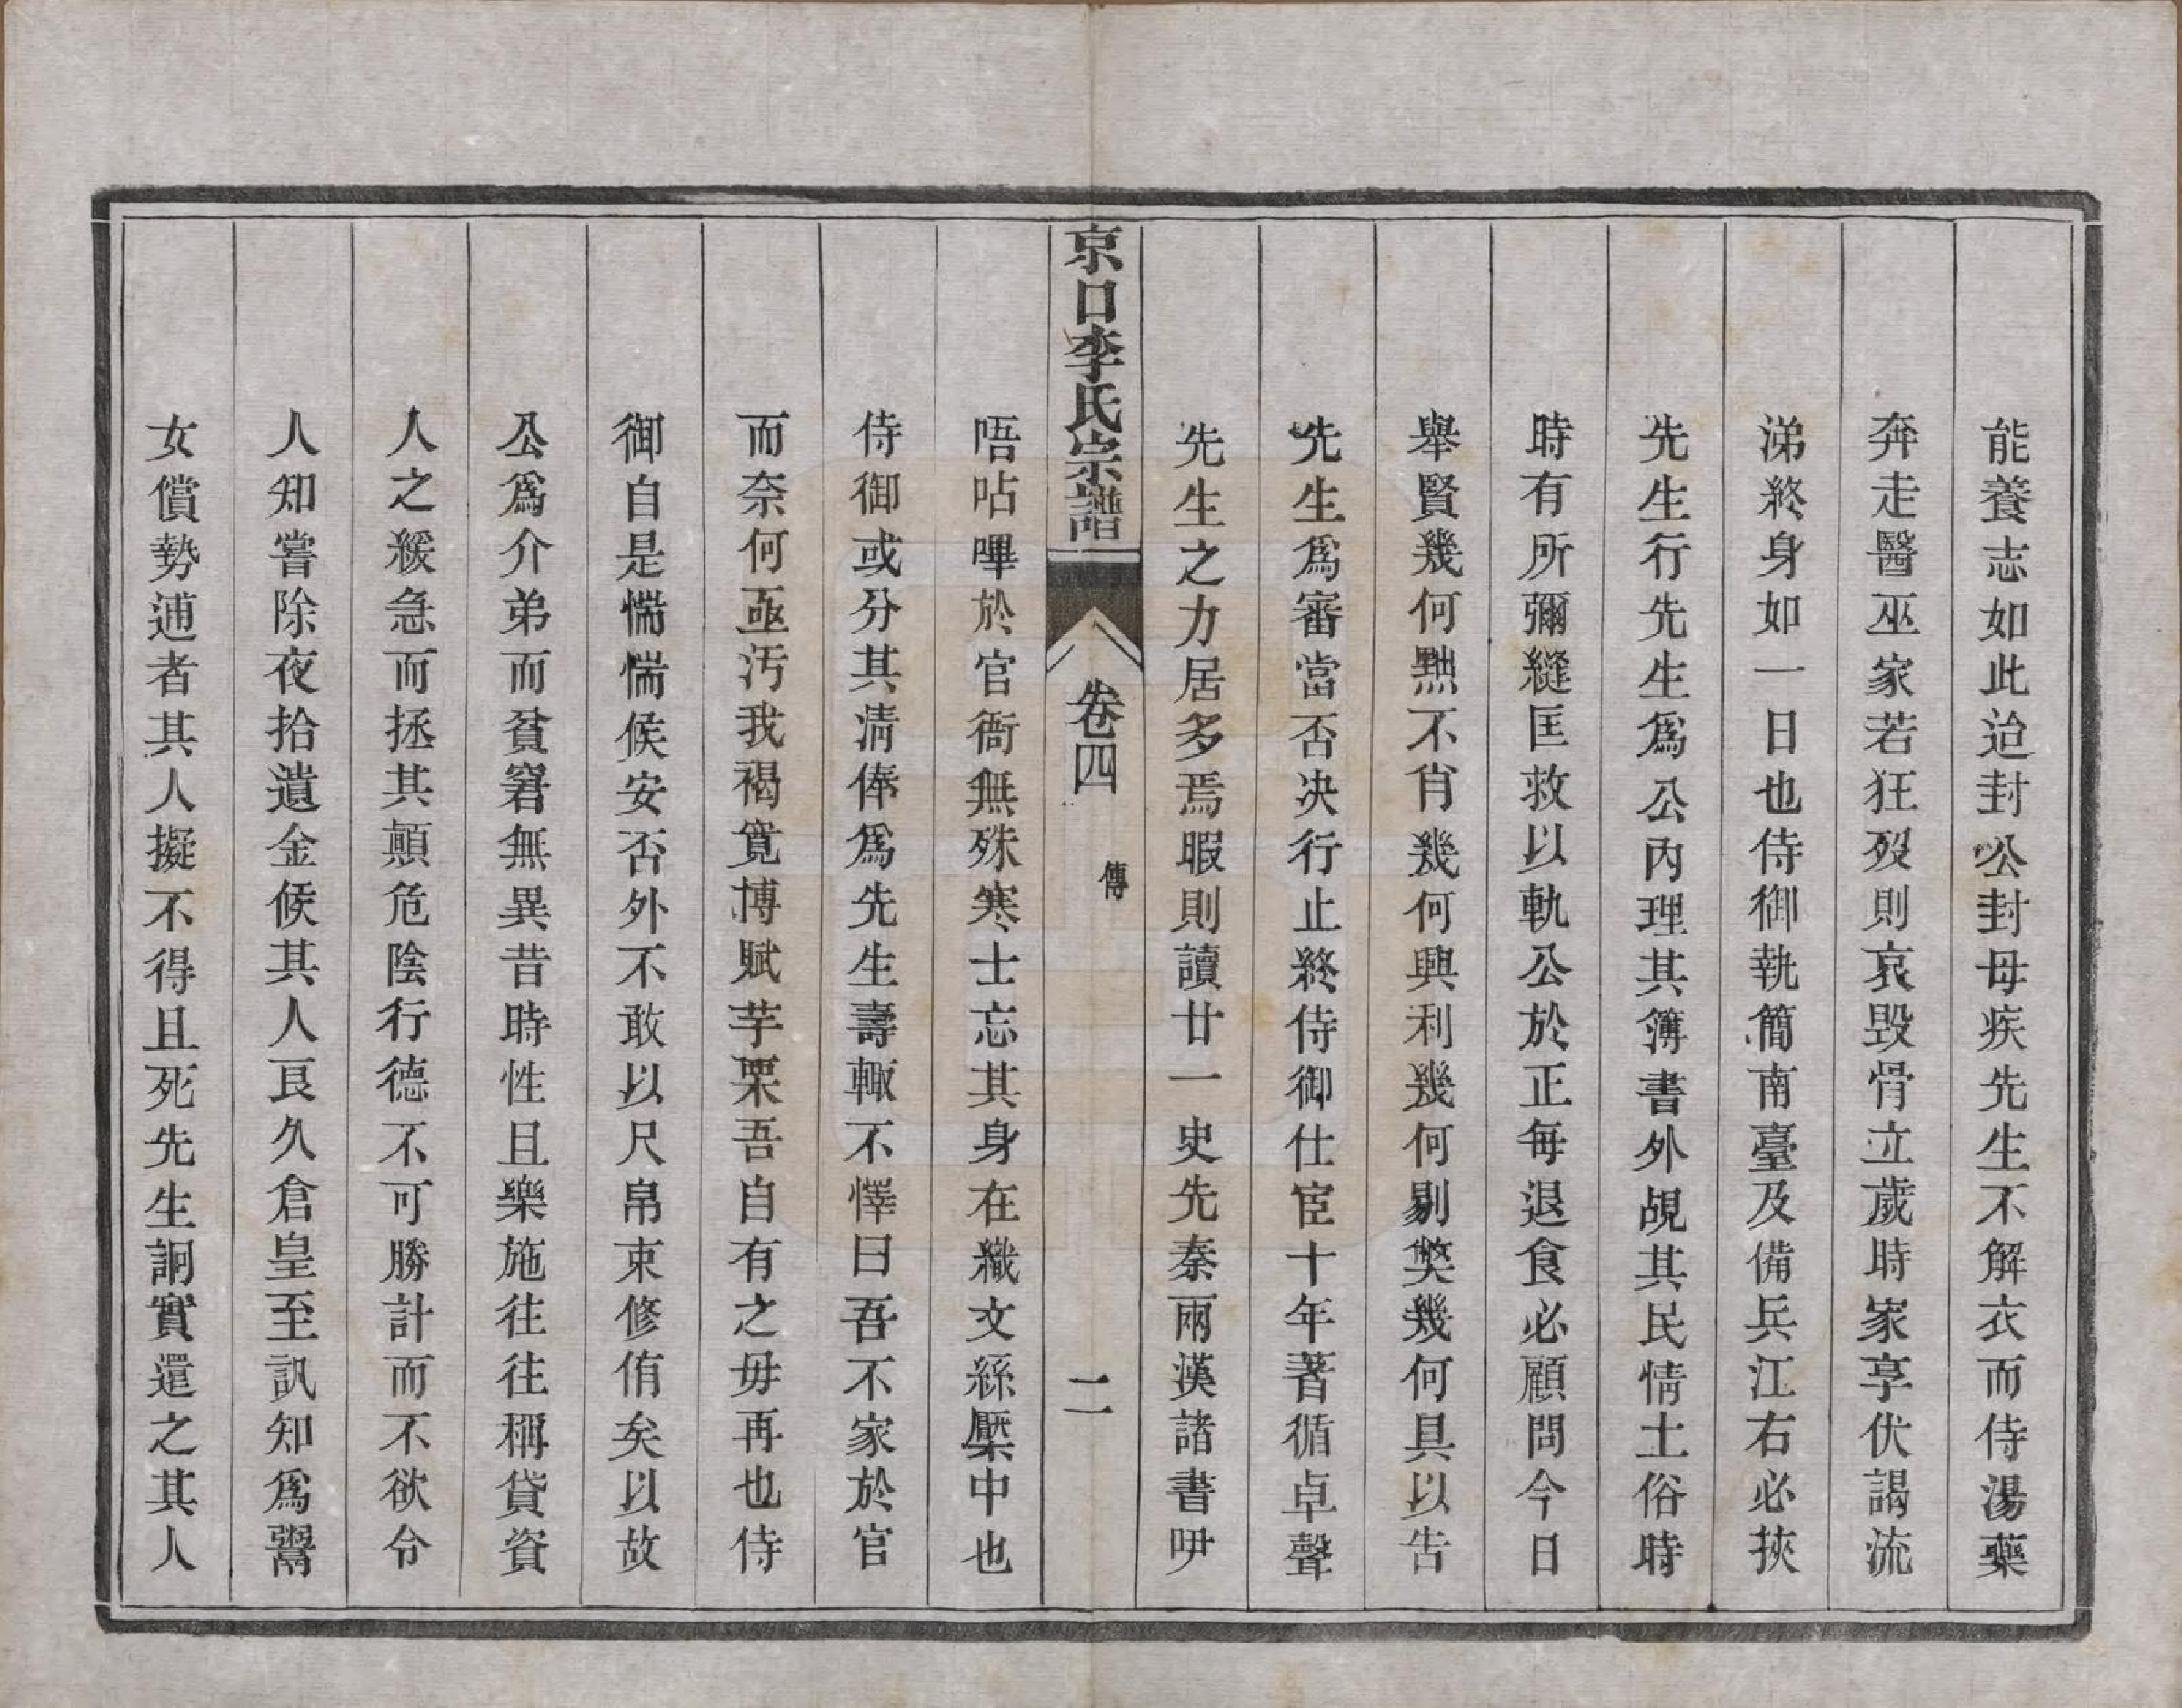 能養志如此迨封公封母疾先生不解衣而侍湯藥
奔走醫巫家若狂歿則哀毀骨立歲時家享伏謁流
涕終身如一日也侍御執簡南臺及備兵江右必挾
先生行先生爲公內理其簿書外覘其民情土俗時
時有所彌縫匡救以軌公於正每退食必顧問今日
舉賢幾何黜不肖幾何興利幾何剔獘幾何具以告
先生爲審當否决行止終侍御仕宦十年著循卓聲
先生之力居多焉暇則讀廿一史先秦兩漢諸書咿
唔呫嗶於官衙無殊寒士忘其身在織文絲檿中也
侍御或分其淸俸爲先生壽輙不懌曰吾不家於官
而奈何亟汚我褐寬博賦芧栗吾自有之毋再也侍
御自是惴惴候安否外不敢以尺帛束修侑矣以故
公爲介弟而貧窘無異昔時性且樂施往往稱貸資
人之緩急而拯其顛危陰行德不可勝計而不欲令
人知嘗除夜拾遺金候其人良久倉皇至訊知爲鬻
女償勢逋者其人擬不得且死先生詗實還之其人
京口李氏宗譜
卷四
傳
二